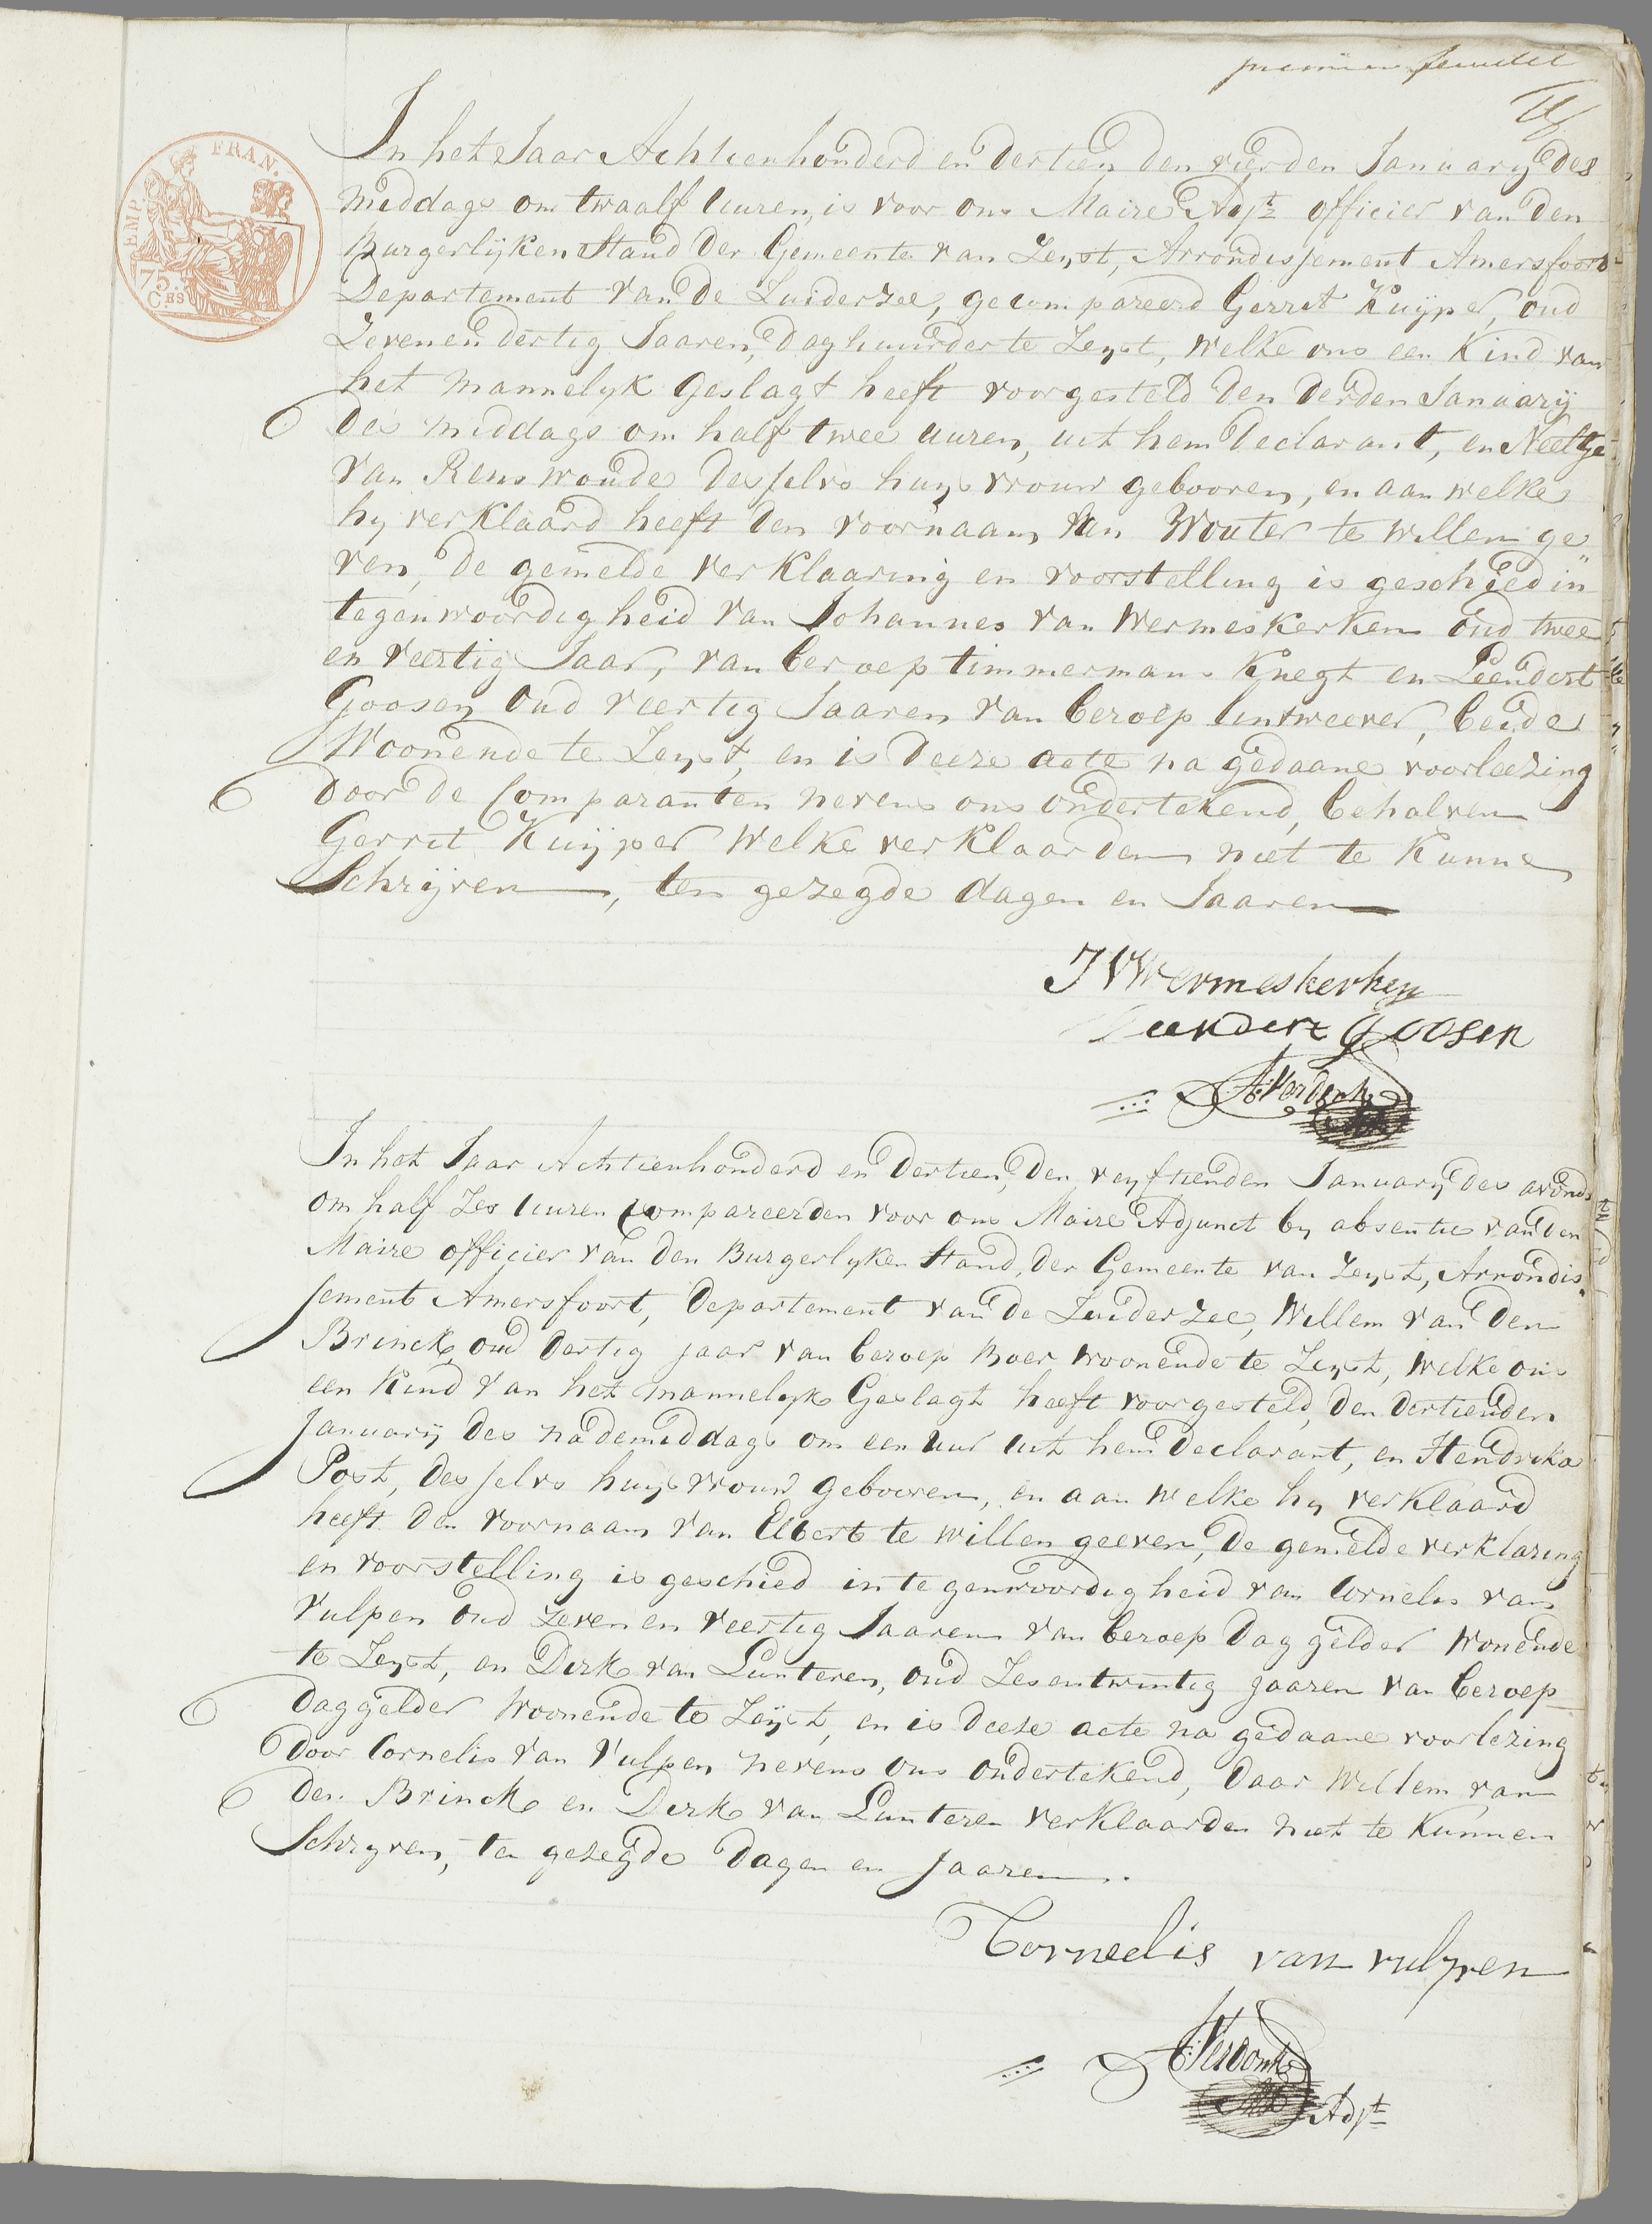 premier feuillet
EMP. FRAN.
75. CES
In het Jaar Achtienhonderd en dertien den vierden January des
middags om twaalf uuren, is voor ons Maire Adjt officier van den
Burgerlyken Stand der Gemeente van Zeyst, Arrondissement Amersfoort
Departement van de Zuiderzee, gecompareerd Gerrit Kuyper, oud
Zeven en dertig Jaaren, daghuurder te Zeyst, welke ons een Kind van
het mannelyk Geslagt heeft voorgesteld den derden January
des middags om half twee uuren, uit hem Declarant, en Neeltje
van Renswoude desselvs huysvrouw gebooren, en aan welke
hy verklaard heeft den voornaam van Wouter te willen ge„
ven, de gemelde verklaaring en voorstelling is geschied in
tegenwoordigheid van Johannes van Wermeskerken oud twee
en veertig Jaar, van beroep timmermans Knegt en Leendert
Goosen oud veertig Jaaren van beroep lintweever, beide
Woonende te Zeyst, en is deeze acte na gedaane voorleezing
door de Comparanten nevens ons ondertekend, behalven
Gerrit Kuyper welke verklaarden niet te Kunne
Schryven, ten gezegde dagen en Jaaren
J V Wermeskerken
Leendert Goosen
In het Jaar Achtienhonderd en dertien, den vyftienden January des avonds
om half zes uuren compareerden voor ons Maire Adjunct by absentie van den
Maire officier van den Burgerlyken Stand, der Gemeente van Zeyst, Arrondis„
sement Amersfoort, Departement van de Zuiderzee, Willem van den
Brinck oud dertig jaar van beroep Boer woonende te Zeyst, welke ons
een Kind van het mannelyk Geslagt heeft voorgesteld, den dertienden
January des nademiddags om een uur uit hem declarant, en Hendrika
Post, desselvs huysvrouw gebooren, en aan welke hy verklaard
heeft den voornaam van Elbert te willen geeven, de gemelde verklaring
en voorstelling is geschied in tegenwoordigheid van Cornelis van
Vulpen oud zeven en veertig Jaaren van beroep Daggelder Wonende
te Zeyst, en Dirk van Lunteren, oud Zes en twintig jaaren van beroep
daggelder Woonende te Zeyst, en is deeze acte na gedaane voorlezing
door Cornelis van Vulpen nevens ons ondertekend, daar Willem van
den Brinck en Dirk van Lunteren verklaarden niet te Kunnen
Schryven, ten gezegde dagen en Jaaren.
Cornelis van vulpen
Adjt